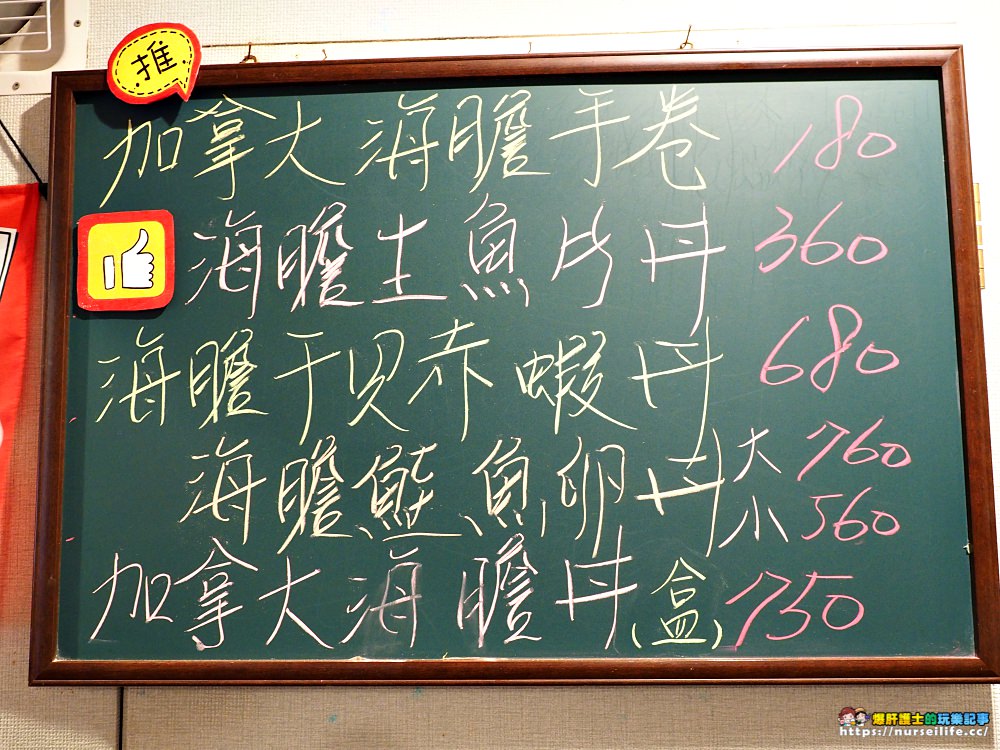 推
加拿大海膽手卷 180
海膽土魚片丹 360
海膽干貝赤蝦丹 680
海膽鮭魚卵丹 大 760
小 560
加拿大海膽丹(盒) 750
爆肝護士的玩樂記事
https://nurseilife.cc/